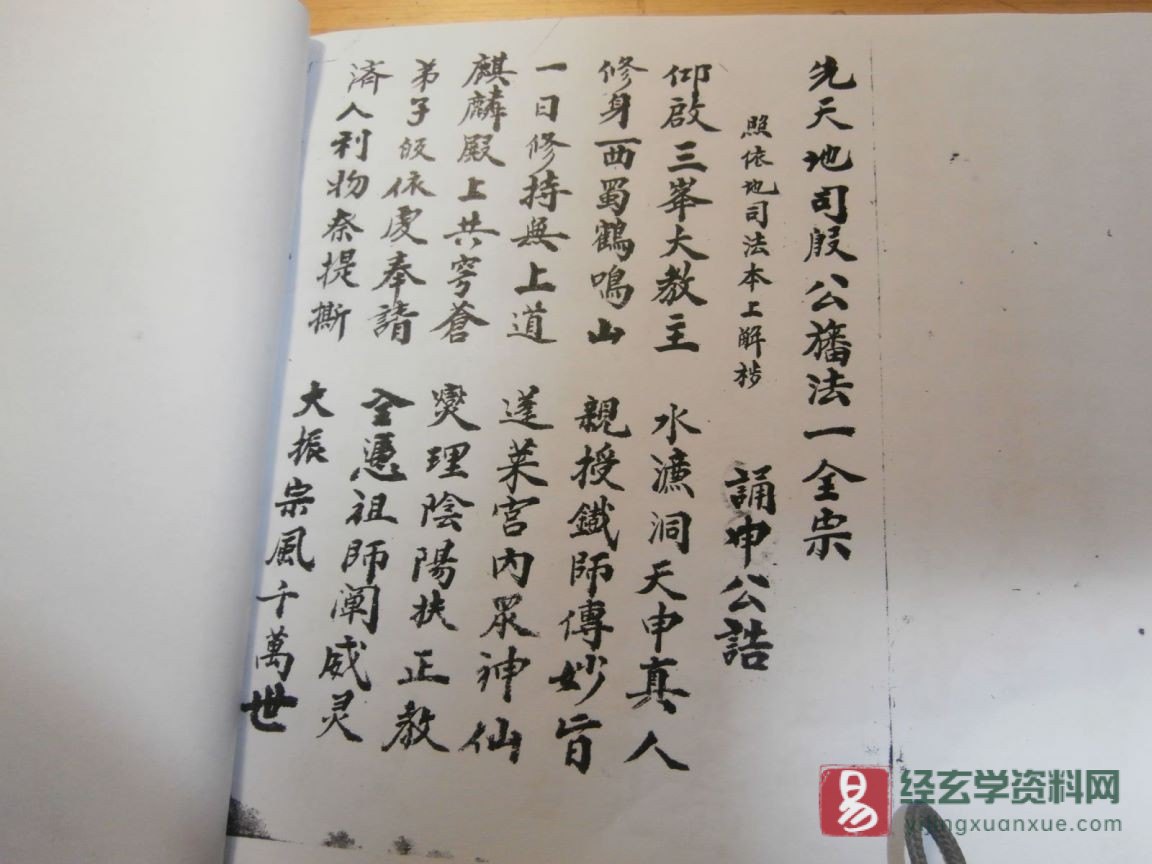 先天地司殷公旛法一全宗
照依地司法本上解秽 誦申公誥
仰啟三峯大教主 水濂洞天申真人
修身西蜀鶴鳴山 親授鐵師傳妙旨
一日修持無上道 蓬萊宮內眾神仙
麒麟殿上共穹蒼 燮理陰陽扶正教
弟子皈依虔奉請 全憑祖師闡威灵
済人利物叅提撕 大振宗風千萬世
易 经玄学资料网
yijingxuanxue.com